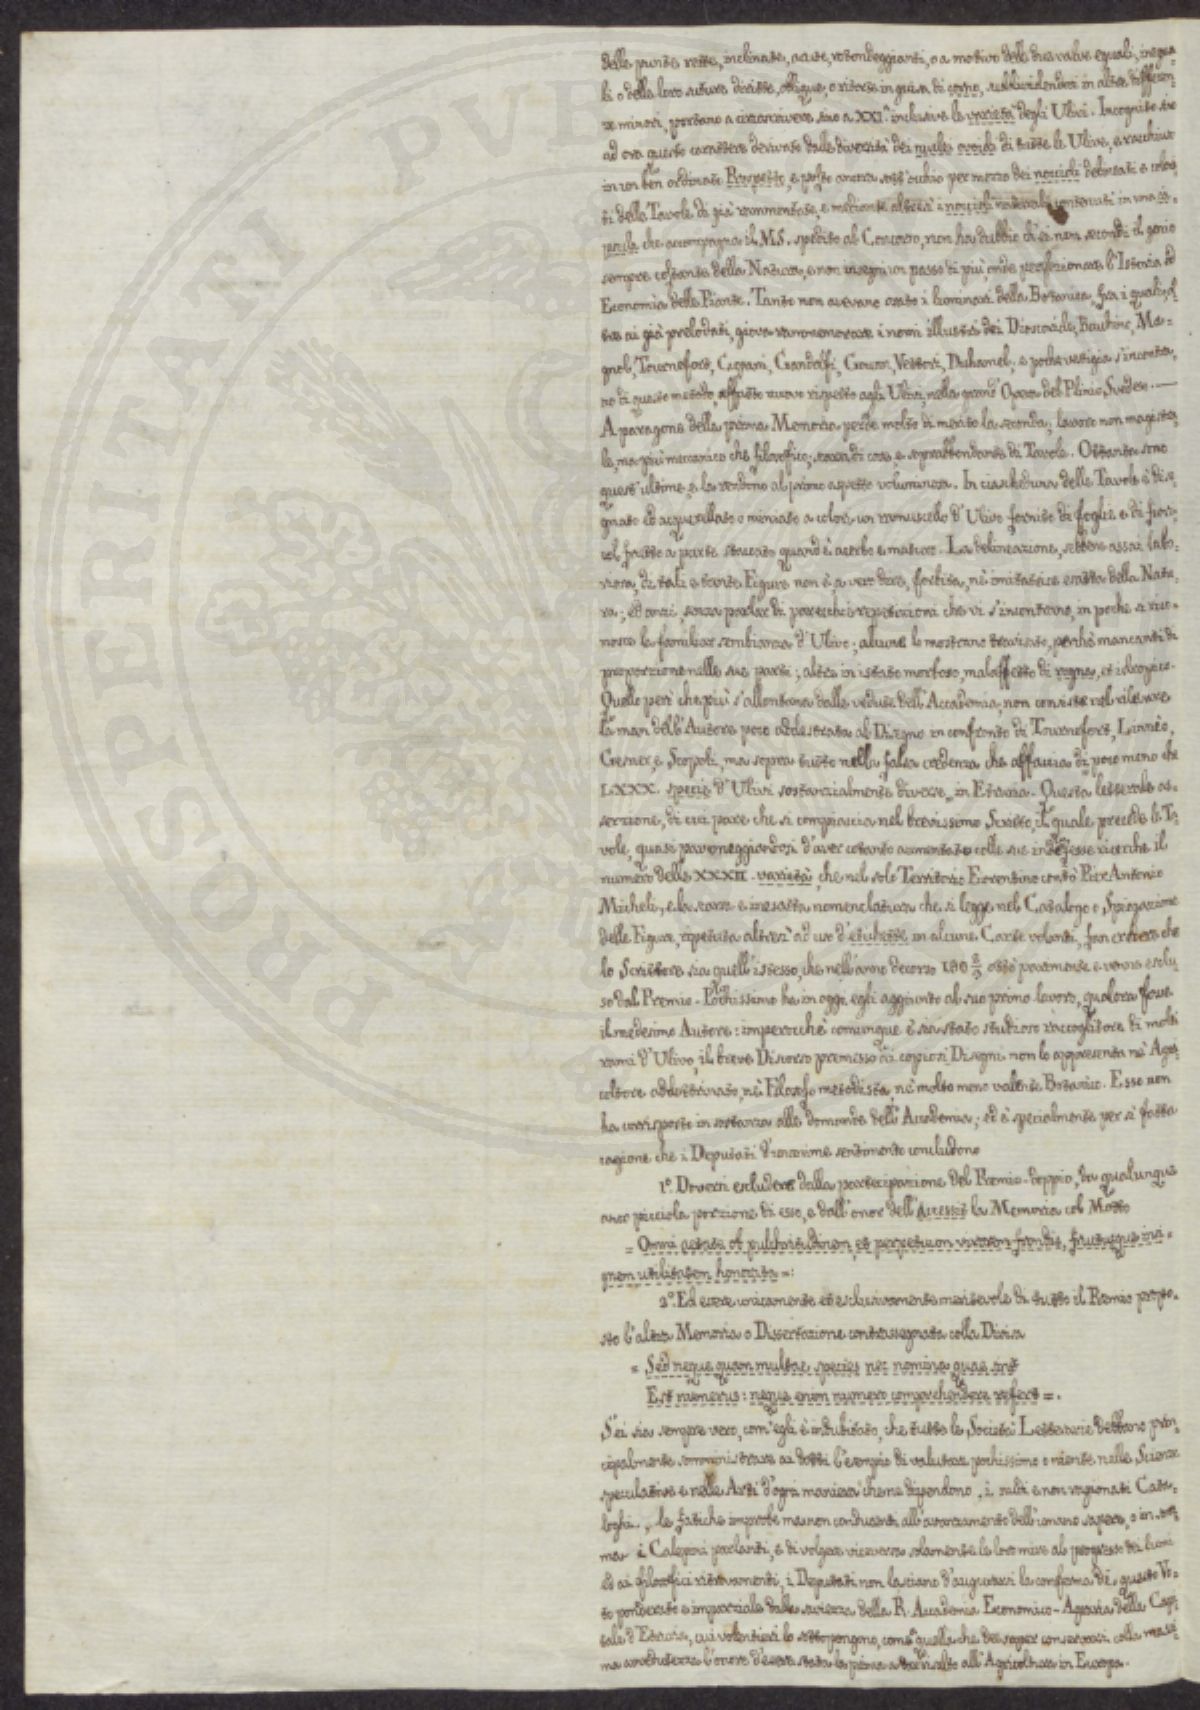 delle punte rette, inclinate, acute, rotondeggianti, o a motivo delle due valve eguali, inegua-
li o della loro suture diritte, oblique, o ritorte in guisa di corno, suddividendosi in altre differen-
ze minori, portano a circoscrivere sino a XXI.ª inclusive le varietà degli Ulivi. Incognito sino
ad ora questo carattere derivato dalla diversità dei nuclei ovoidi di tutte le Ulive, e racchiuso
in un ben ordinato Prospetto, e posto ancora sott'occhio per mezzo dei noccioli delineati e colori-
ti delle Tavole di già rammentate, e mediante altresì i noccioli naturali contenuti in una
che accompagna il M.S. spedito al Concorso, non ha dubbio ch'ei non secondi il genio
sempre costante della Natura, e non insegni un passo di più, onde perfezionare l'Istoria ed
Economia delle Piante. Tanto non avevano osato i luminari della Botanica, fra i quali, ol-
tre ai già prelodati, giova rammemorare i nomi illustri dei Dioscoride, Bauhino, Ma-
gnol, Tournefort, Cupani, Gandolfi, Gouan, Vettori, Duhamel; e poche vestigia s'incontra-
no di questo metodo, affatto nuovo rispetto agli Ulivi, nella grand'Opera del Plinio Svedese. —
A paragone della prima Memoria perde molto di merito la seconda; lavoro non magistra-
le, ma più meccanico che filosofico; scarsa di cose, e soprabbondante di Tavole. Ottanta sono
quest'ultime, e la rendono al primo aspetto voluminosa. In ciascheduna delle Tavole è dise-
gnato ed acquerellato o miniato a colori un ramuscello d'Ulivo fornito di foglie e di fiori
col frutto a parte staccato quand'è acerbo e maturo. La delineazione, sebbene assai labo-
riosa, di tali e tante Figure non è, a vero dire, forbita, nè imitatrice esatta della Natu-
ra; ed anzi, senza parlar di parecchie repetizioni che vi s'incontrano, in poche si rico-
nosce la familiar sembianza d'Ulivo; alcune lo mostrano travisato, perchè mancanti di
proporzione nelle sue parti; altre in istato morboso, malaffetto di rogna, et idropico.
Quello però che più s'allontana dalle vedute dell'Accademia, non consiste nel rilevare
la man dell'Autore poco addestrata al Disegno in confronto di Tournefort, Linnèo,
Gesner, e Scopoli, ma sopra tutto nella falsa credenza che affaccia di poco meno che
LXXX. specie d'Ulivi sostanzialmente diverse in Etruria. Questa letterale as-
serzione, di cui pare che si compiaccia nel brevissimo Scritto, il quale precede le Ta-
vole, quasi pavoneggiandosi d'aver cotanto aumentato colle sue indefesse ricerche il
numero delle XXXII. varietà, che nel solo Territorio Fiorentino contò Pier Antonio
Micheli, e la scarsa e inesatta nomenclatura che si legge nel Catalogo o Spiegazione
delle Figure, ripetuta altresì ad uso d'etichette in alcune Carte volanti, fan credere che
lo Scrittore sia quell'istesso, che nell'anno decorso 180 2/3 osò parimente e venne esclu-
so dal Premio. Pochissimo ha in oggi egli aggiunto al suo primo lavoro, qualora fosse
il medesimo Autore: imperocchè comunque è sia stato studioso raccoglitore di molti
rami d'Ulivo, il breve Discorso premesso ai copiosi Disegni non lo appresenta nè Agri-
coltore addottrinato, nè Filosofo metodista, nè molto meno valente Botanico. Esso non
ha corrisposto in sostanza alle domande dell'Accademia; ed è specialmente per sì fatta
cagione che i Deputati d'unanime sentimento concludono
1.º Doversi escludere dalla partecipazione del Premio doppio, da qualunque
anco picciola porzione di esso, e dall'onor dell'Accessit la Memoria col Motto
= Omni aetate ob pulchritudinem, et perpetuam vivacem frondis, fructusque insi-
gnem utilitatem honorata =:
2.º Ed essere unicamente ed esclusivamente meritevole di tutto il Premio propo-
sto l'altra Memoria o Dissertazione contrassegnata colla Divisa
= Sed neque quam multae species nec nomina quae sint
Est numerus: neque enim numero comprehendere refert =.
S'ei sia sempre vero, com'egli è indubitato, che tutte le Società Letterarie debbano prin-
cipalmente somministrare ai dotti l'esempio di valutar pochissimo o niente nelle Scienze
speculative e nelle Arti d'ogni maniera che ne dipendono, i nudi e non ragionati Cata-
loghi, le fatiche improbe ma non conducenti all'avanzamento dell'umano sapere, o in som-
ma i Calepini parlanti, e di volgere viceversa solamente le loro mire al progresso dei lumi
ed ai filosofici ritrovamenti, i Deputati non lasciano d'augurarsi la conferma di questo Vo-
to ponderato e imparziale dalla saviezza della R. Accademia Economico-Agraria della Capi-
tale d'Etruria, cui volentieri lo sottopongono, come quella che dee saper conservarsi colla massi-
ma avvedutezza l'onore d'essere stata la prima a dar risalto all'Agricoltura in Europa.